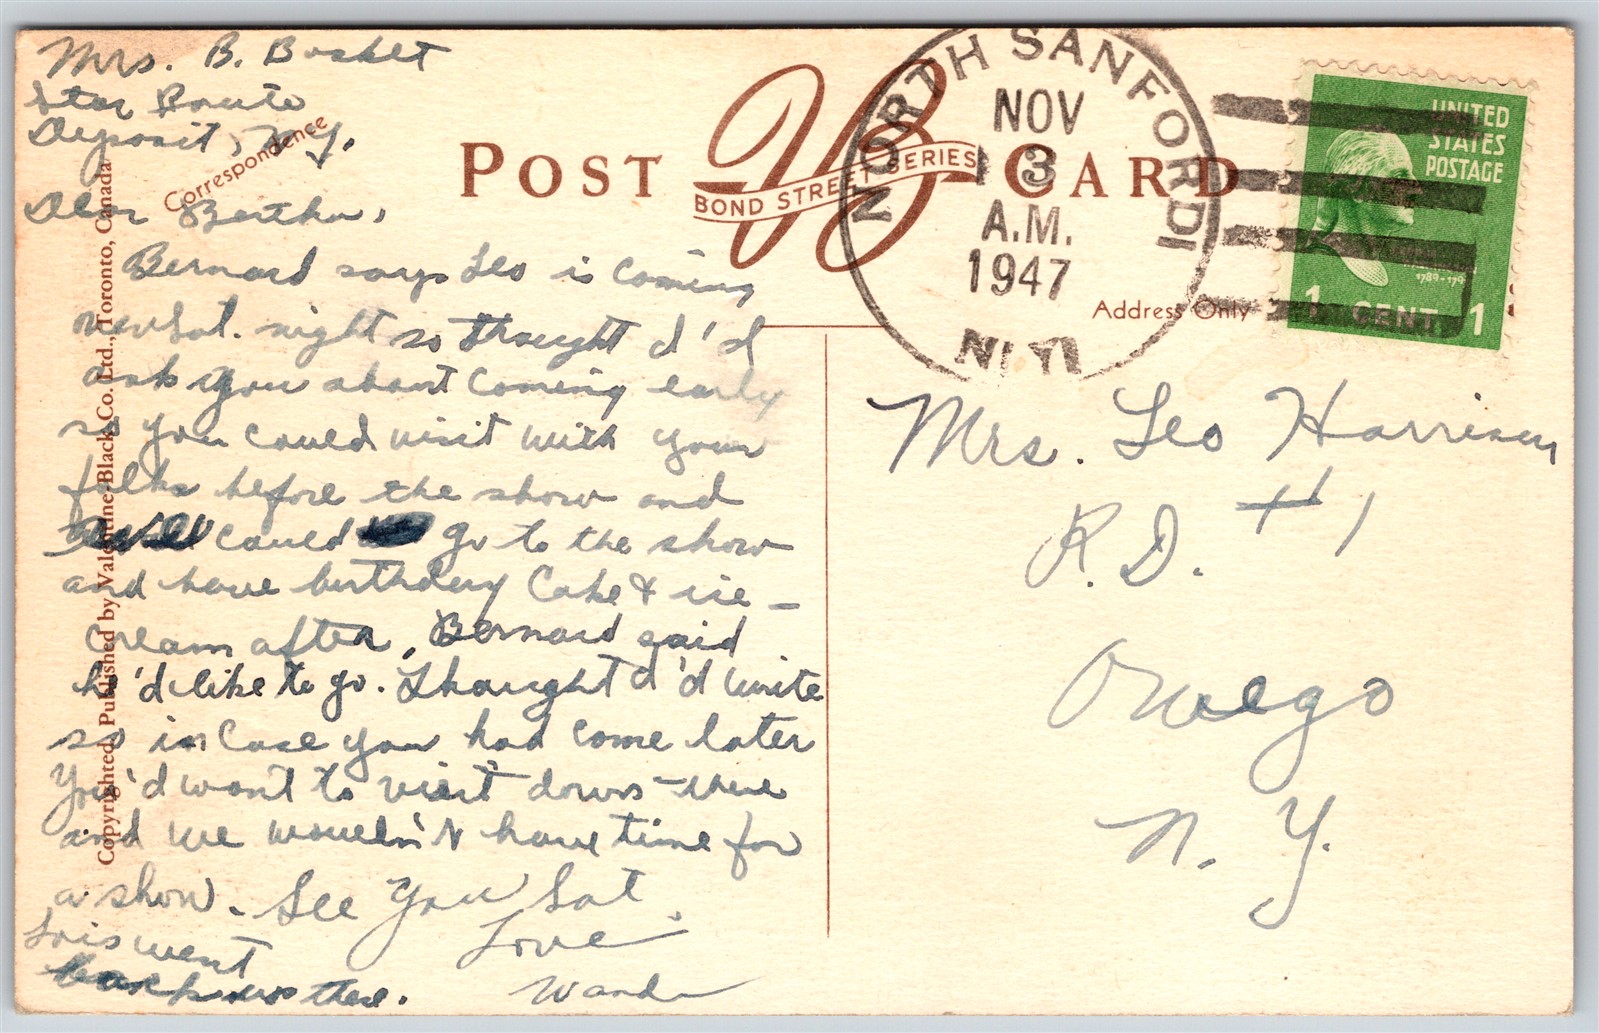 Mrs. B. Bosket
Star Route
Deposit, N.Y.
Dear Bertha,
Bernard says Leo is coming
over Sat. night so thought I'd
ask you about coming early
so you could visit with your
folks before the show and
could go to the show
and have birthday cake & ice-
cream after. Bernard said
he'd like to go. Thought I'd write
so in case you had come later
You'd want to visit down there
and we wouldn't have time for
a show. See You Sat.
Love
Wanda
Lois went
back there.
Correspondence
Copyrighted, Published by Valentine-Black Co. Ltd., Toronto, Canada
POST CARD
VB
BOND STREET SERIES
Address Only
NORTH SANFORD
NOV
13
A.M.
1947
N.Y.
UNITED
STATES
POSTAGE
1 CENT 1
Mrs. Leo Harrison
R.D. #1
Owego
N.Y.